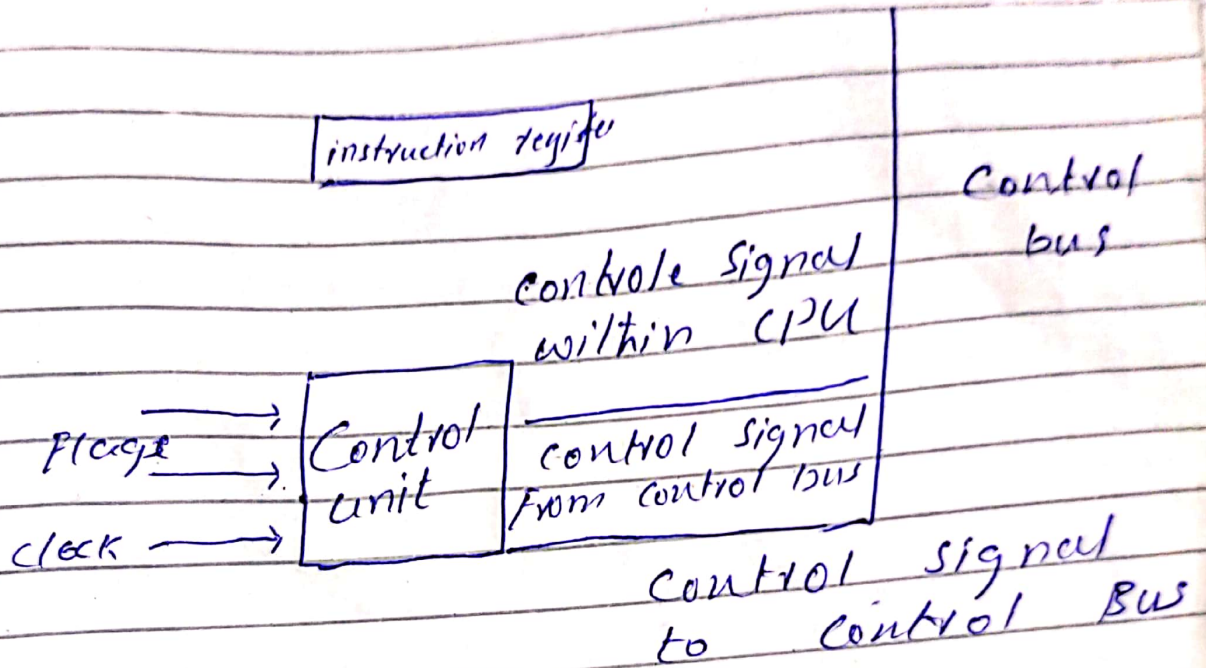 instruction regifer
Control
bus
controle signal
within CPU
Flage
Control
unit
control signal
From control bus
clock
control signal
to control Bus